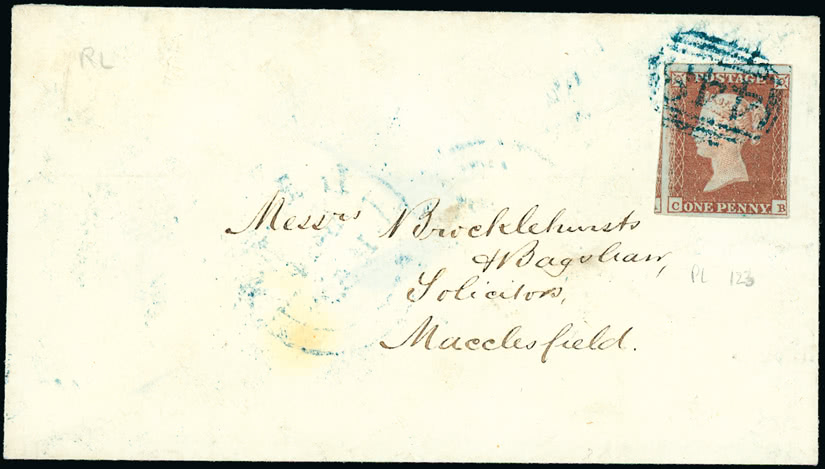 RL
POSTAGE
C ONE PENNY B
Messrs Brocklehursts
& Bagshaw,
Solicitors,
Macclesfield.
PL 123